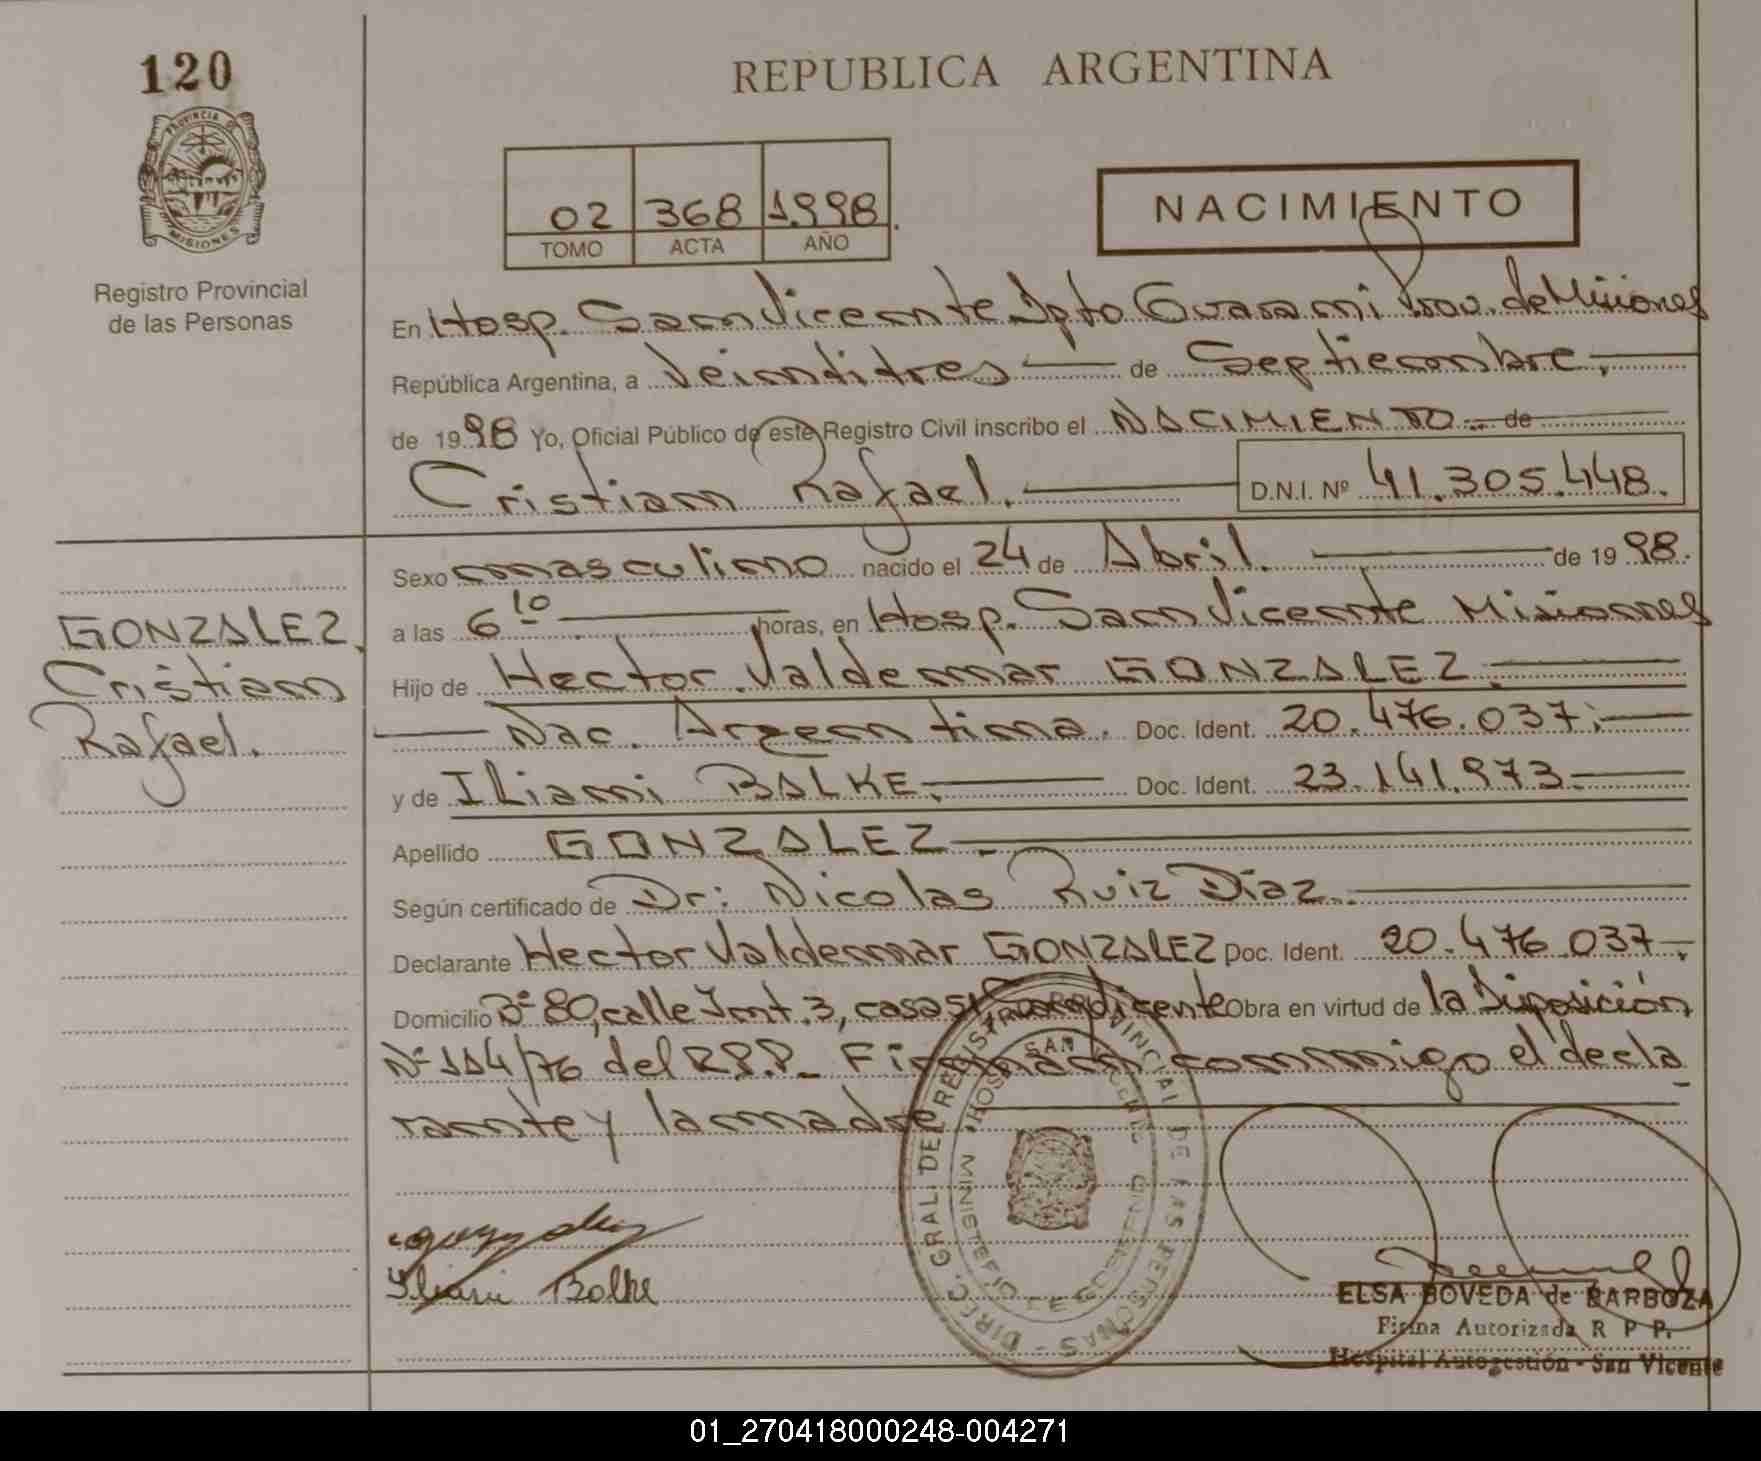 120
REPUBLICA ARGENTINA
PROVINCIA DE MISIONES
Registro Provincial
de las Personas
02 368 1998.
TOMO ACTA AÑO
NACIMIENTO
En Hosp. San Vicente Dpto Guarani Prov. de Misiones
República Argentina, a Veintitres de Septiembre.
de 1998 Yo, Oficial Público de este Registro Civil inscribo el NACIMIENTO de
Cristian Rafael. D.N.I. Nº 41.305.448.
Sexo masculino nacido el 24 de Abril. de 1998.
a las 6 10 horas, en Hosp. San Vicente Misiones
Hijo de Hector Valdemar GONZALEZ.
Nac. Argentina. Doc. Ident. 20.476.037.
y de ILiani BALKE. Doc. Ident. 23.141.973.
Apellido GONZALEZ.
Según certificado de Dr: Nicolas Ruiz Diaz.
Declarante Hector Valdemar GONZALEZ Doc. Ident. 20.476.037.
Domicilio Bº 80, calle Int. 3, casa 51, San Vicente Obra en virtud de la Disposición
Nº 114/76 del R.P.P. Firman conmigo el decla
rante y la madre.
GONZALEZ
Cristian
Rafael.
DIREC. GRAL. DEL REGISTRO PROVINCIAL DE LAS PERSONAS
HOSP. SAN VICENTE
Iliani Balke
ELSA BOVEDA de BARBOZA
Firma Autorizada R P P.
Hospital Autogestión - San Vicente
01_270418000248-004271